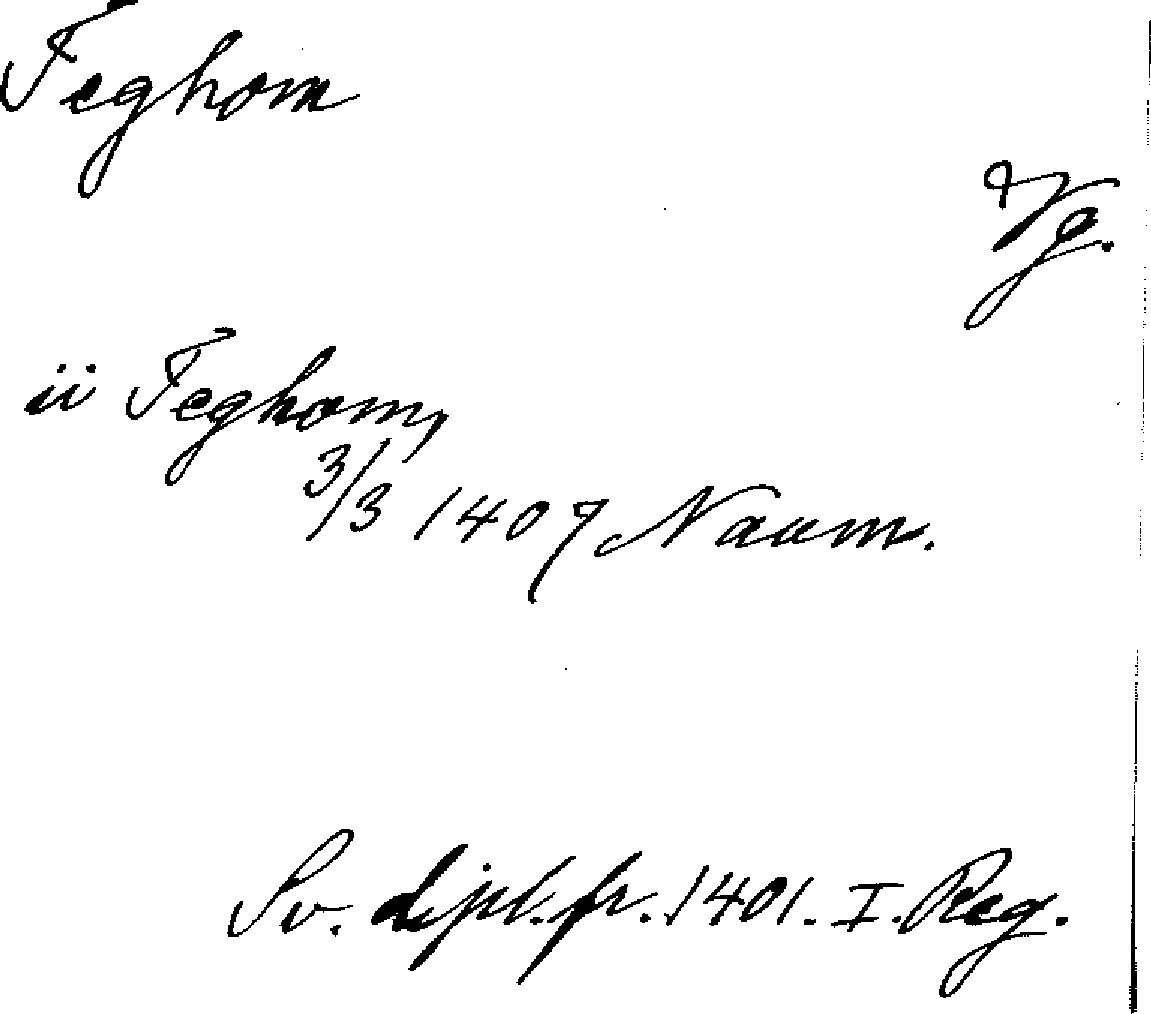 Feghom
Vg.
ii Feghom,
3/3 1407 Naum.
Sv. dipl. fr. 1401. I. Reg.